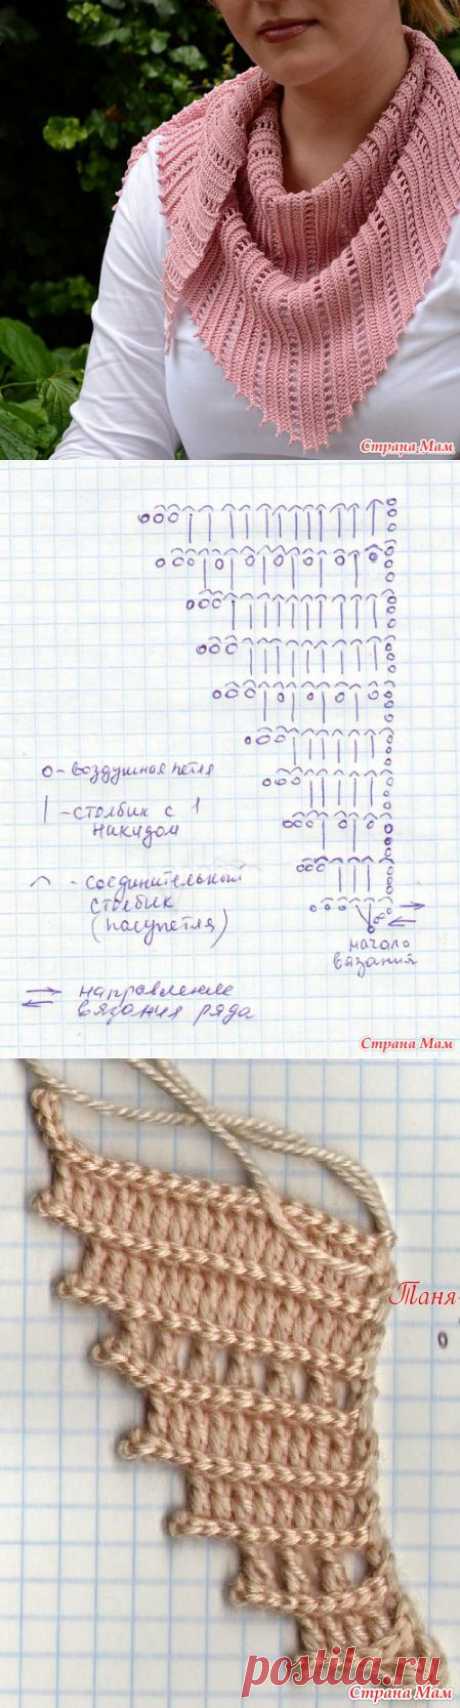 Страна Мам
о - воздушная петля
| - столбик с 1
накидом
⌒ - соединительный
столбик
(полупетля)
начало
вязания
направление
вязания ряда
Страна Мам
Таня-
0
postila.ru
Страна Мам